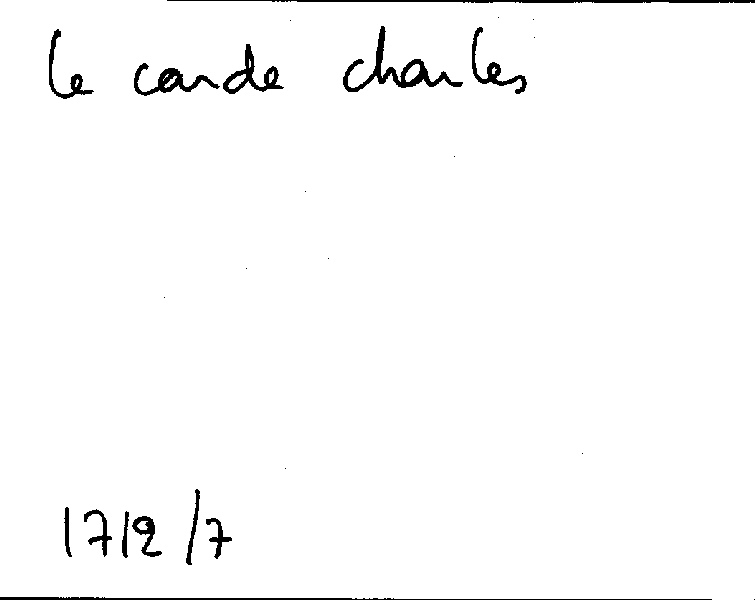 le carde charles
1712/7